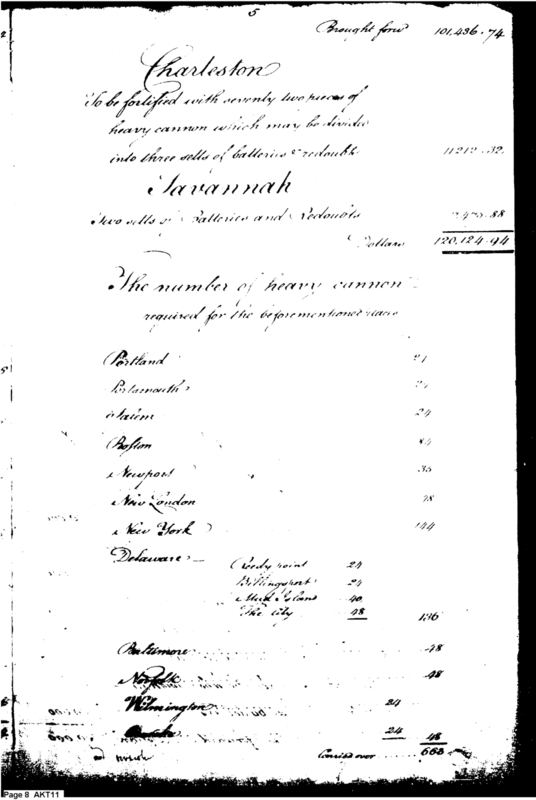 5
Brought forw 101,436.74
Charleston
To be fortified with seventy two pieces of
heavy cannon which may be divided
into three setts of batteries & redoubts 11212.32
Savannah
Two setts of Batteries and Redoubts 88
Dollars 120,124.94
The number of heavy cannon
required for the beforementioned
Portland 24
Portsmouth 24
Salem 24
Boston 84
Newport
New London
New York 144
Delaware
Reedy point 24
Billingsport 24
Mud Island 40
The City 48 136
Baltimore 48
Norfolk 48
Wilmington 24
24 48
Carried over
Page 8 AKT11